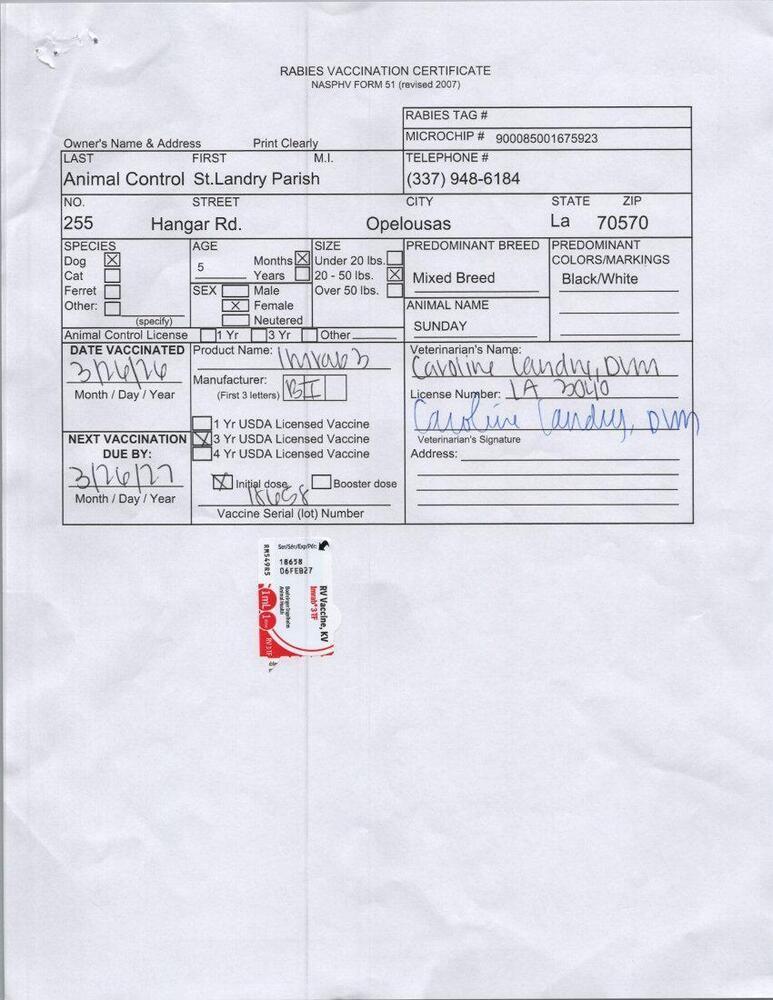 RABIES VACCINATION CERTIFICATE
NASPHV FORM 51 (revised 2007)
RABIES TAG #
MICROCHIP # 900085001675923
Owner's Name & Address Print Clearly
LAST FIRST M.I. TELEPHONE #
Animal Control St.Landry Parish (337) 948-6184
NO. STREET CITY STATE ZIP
255 Hangar Rd. Opelousas La 70570
SPECIES AGE SIZE PREDOMINANT BREED PREDOMINANT
COLORS/MARKINGS
Dog X 5 Months X Under 20 lbs.
Cat Years 20 - 50 lbs. X Mixed Breed Black/White
Ferret SEX Male Over 50 lbs.
Other: X Female ANIMAL NAME
(specify) Neutered SUNDAY
Animal Control License 1 Yr 3 Yr Other
DATE VACCINATED Product Name: Imrab 3 Veterinarian's Name:
3/26/26 Caroline Landry, DVM
Month / Day / Year Manufacturer: BI License Number: LA 3040
(First 3 letters)
1 Yr USDA Licensed Vaccine Caroline Landry, DVM
NEXT VACCINATION 3 Yr USDA Licensed Vaccine Veterinarian's Signature
DUE BY: 4 Yr USDA Licensed Vaccine Address:
3/26/27 X Initial dose Booster dose
Month / Day / Year 18658
Vaccine Serial (lot) Number
Ser/Sér/Exp/Pér:
18658
06FEB27
RM549R5
RV Vaccine, KV
Imrab® 3 TF
Boehringer Ingelheim
Animal Health
1 mL 1
RV 3 TF